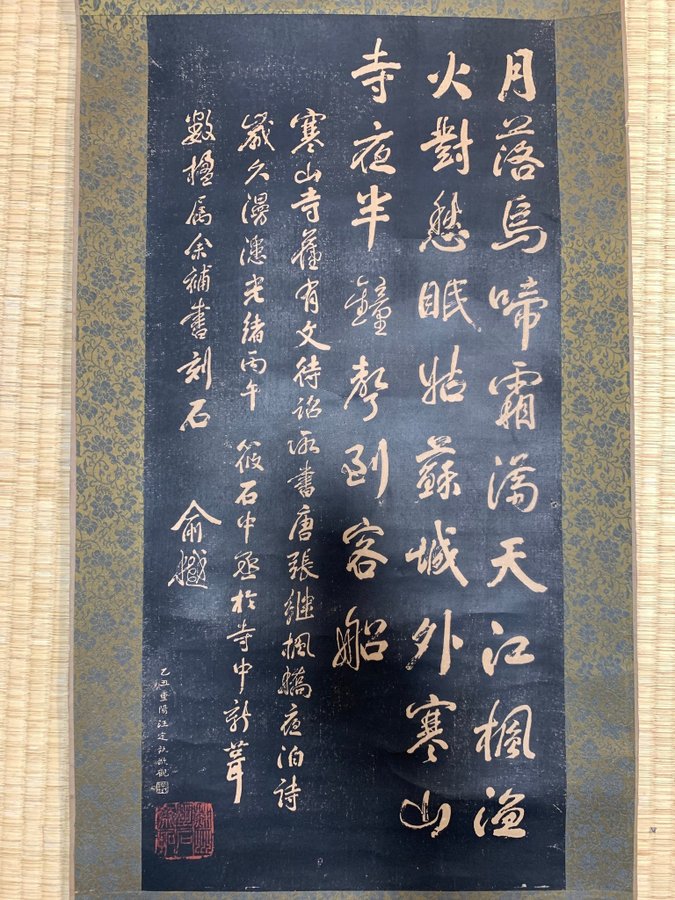 月落烏啼霜滿天江楓漁
火對愁眠姑蘇城外寒山
寺夜半鐘聲到客船
寒山寺舊有文待詔所書唐張繼楓橋夜泊詩
歲久漫漶光緒丙午筱石中丞於寺中新葺
數楹属余補書刻石
俞樾
乙丑重陽汪定執敬觀